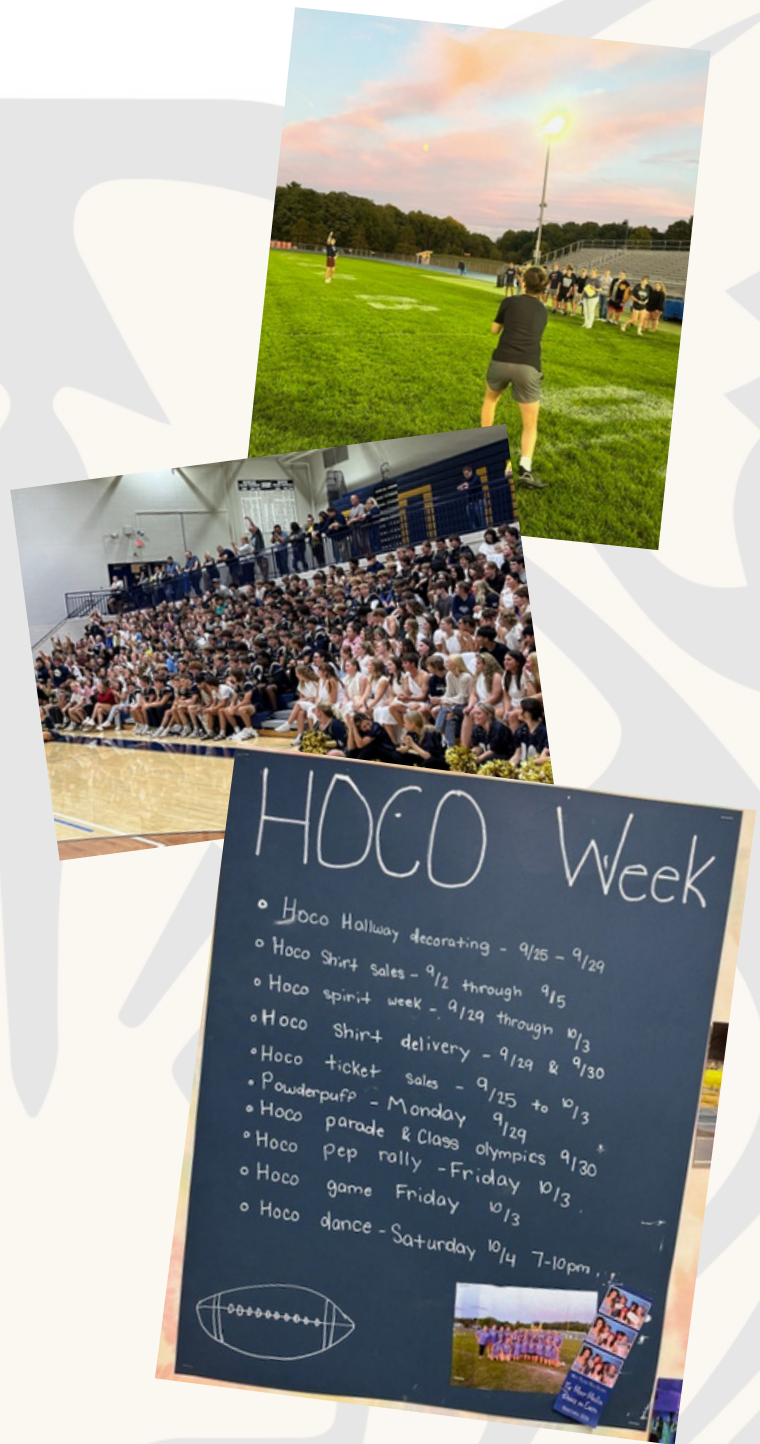 HOCO Week
Hoco Hallway decorating - 9/25 - 9/29
Hoco Shirt sales - 9/2 through 9/5
Hoco spirit week - 9/29 through 10/3
Hoco Shirt delivery - 9/29 & 9/30
Hoco ticket sales - 9/25 to 10/3
Powderpuff - Monday 9/29
Hoco parade & Class olympics 9/30
Hoco pep rally - Friday 10/3
Hoco game Friday 10/3
Hoco dance - Saturday 10/4 7-10pm